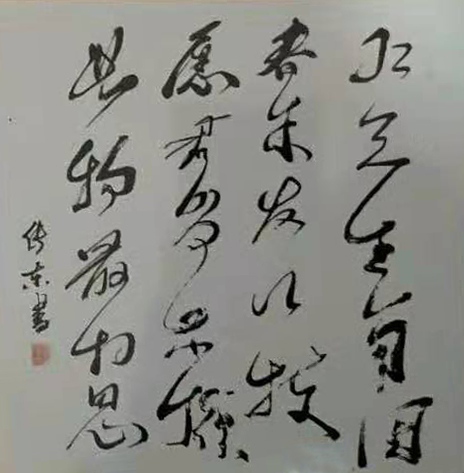 红豆生南国
春来发几枝
愿君多采撷
此物最相思
传东書